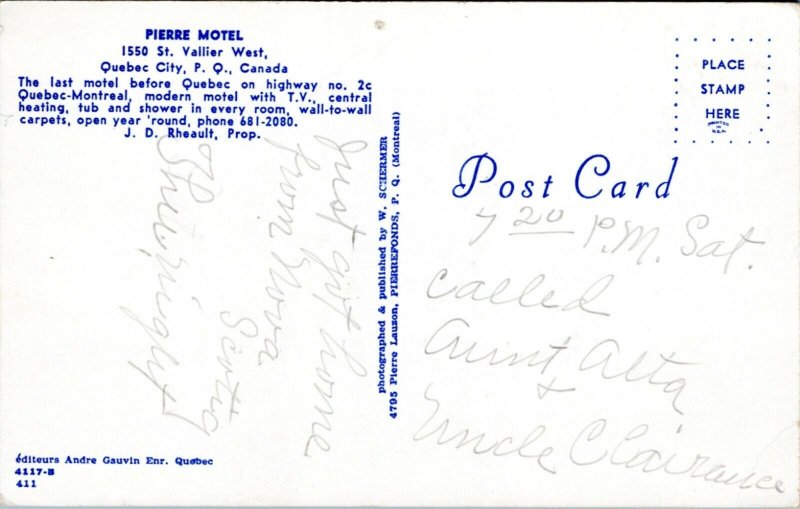 PIERRE MOTEL
1550 St. Vallier West,
Quebec City, P. Q., Canada
The last motel before Quebec on highway no. 2c
Quebec-Montreal, modern motel with T.V., central
heating, tub and shower in every room, wall-to-wall
carpets, open year 'round, phone 681-2080.
J. D. Rheault, Prop.
Just got home
from Nova
Scotia
photographed & published by W. SCHERMER
4795 Pierre Lauzon, PIERREFONDS, P. Q. (Montreal)
PLACE
STAMP
HERE
PRINTED
IN
U.S.A.
Post Card
7 20 P.M. Sat.
called
Aunt Alta
+
Uncle Clairance
éditeurs Andre Gauvin Enr. Quebec
4117-B
411